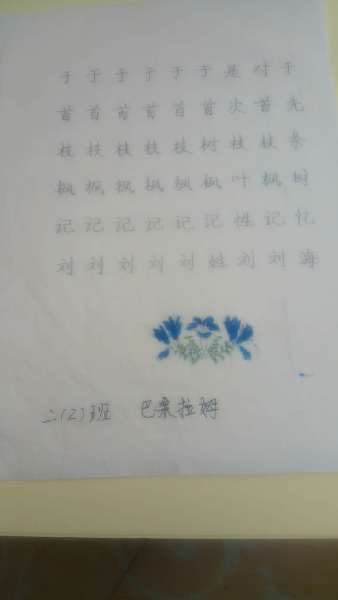 于于于于于于是对于
首首首首首首次首先
枝枝枝枝枝树枝枝条
枫枫枫枫枫枫叶枫树
记记记记记记性记忆
刘刘刘刘刘姓刘刘海
二(2)班 巴桑拉姆